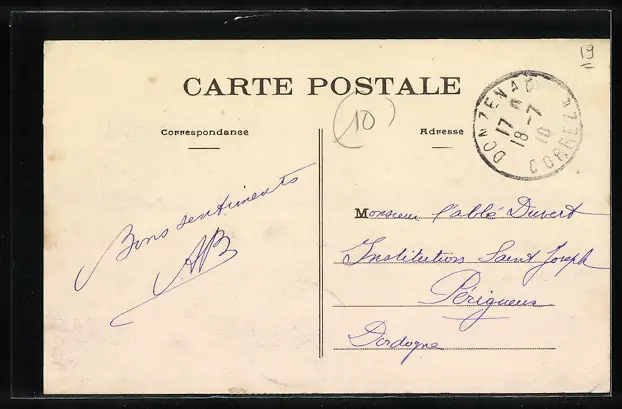 19
CARTE POSTALE
10
Correspondance
Adresse
DONZENAC
17
18-7
10
CORREZE
Bons sentiments
AB
Monsieur l'abbé Duvert
Institution Saint Joseph
Périgueux
Dordogne